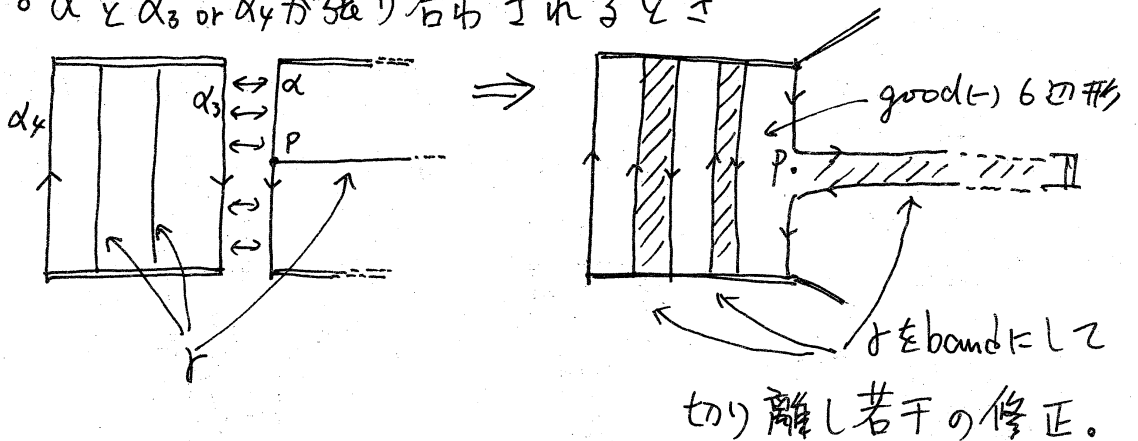 ○ αとα₃ or α₄が張り合わされるとき
α₄
α₃
α
P
⇒
good(-) 6辺形
P.
II
γ
γをbandにして
切り離し若干の修正。